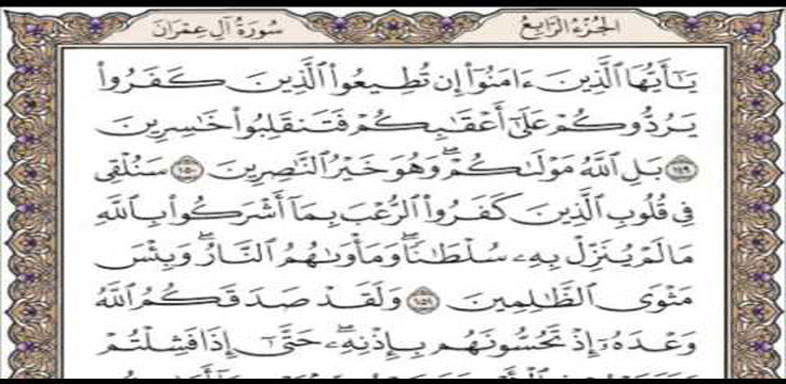 الجزء الرابع
سورة آل عمران
يَـٰٓأَيُّهَا ٱلَّذِينَ ءَامَنُوٓا۟ إِن تُطِيعُوا۟ ٱلَّذِينَ كَفَرُوا۟
يَرُدُّوكُمْ عَلَىٰٓ أَعْقَـٰبِكُمْ فَتَنقَلِبُوا۟ خَـٰسِرِينَ
١٤٩ بَلِ ٱللَّهُ مَوْلَىٰكُمْ ۖ وَهُوَ خَيْرُ ٱلنَّـٰصِرِينَ ١٥٠ سَنُلْقِى
فِى قُلُوبِ ٱلَّذِينَ كَفَرُوا۟ ٱلرُّعْبَ بِمَآ أَشْرَكُوا۟ بِٱللَّهِ
مَا لَمْ يُنَزِّلْ بِهِۦ سُلْطَـٰنًا ۖ وَمَأْوَىٰهُمُ ٱلنَّارُ ۖ وَبِئْسَ
مَثْوَى ٱلظَّـٰلِمِينَ ١٥١ وَلَقَدْ صَدَقَكُمُ ٱللَّهُ
وَعْدَهُۥٓ إِذْ تَحُسُّونَهُم بِإِذْنِهِۦ ۖ حَتَّىٰٓ إِذَا فَشِلْتُمْ